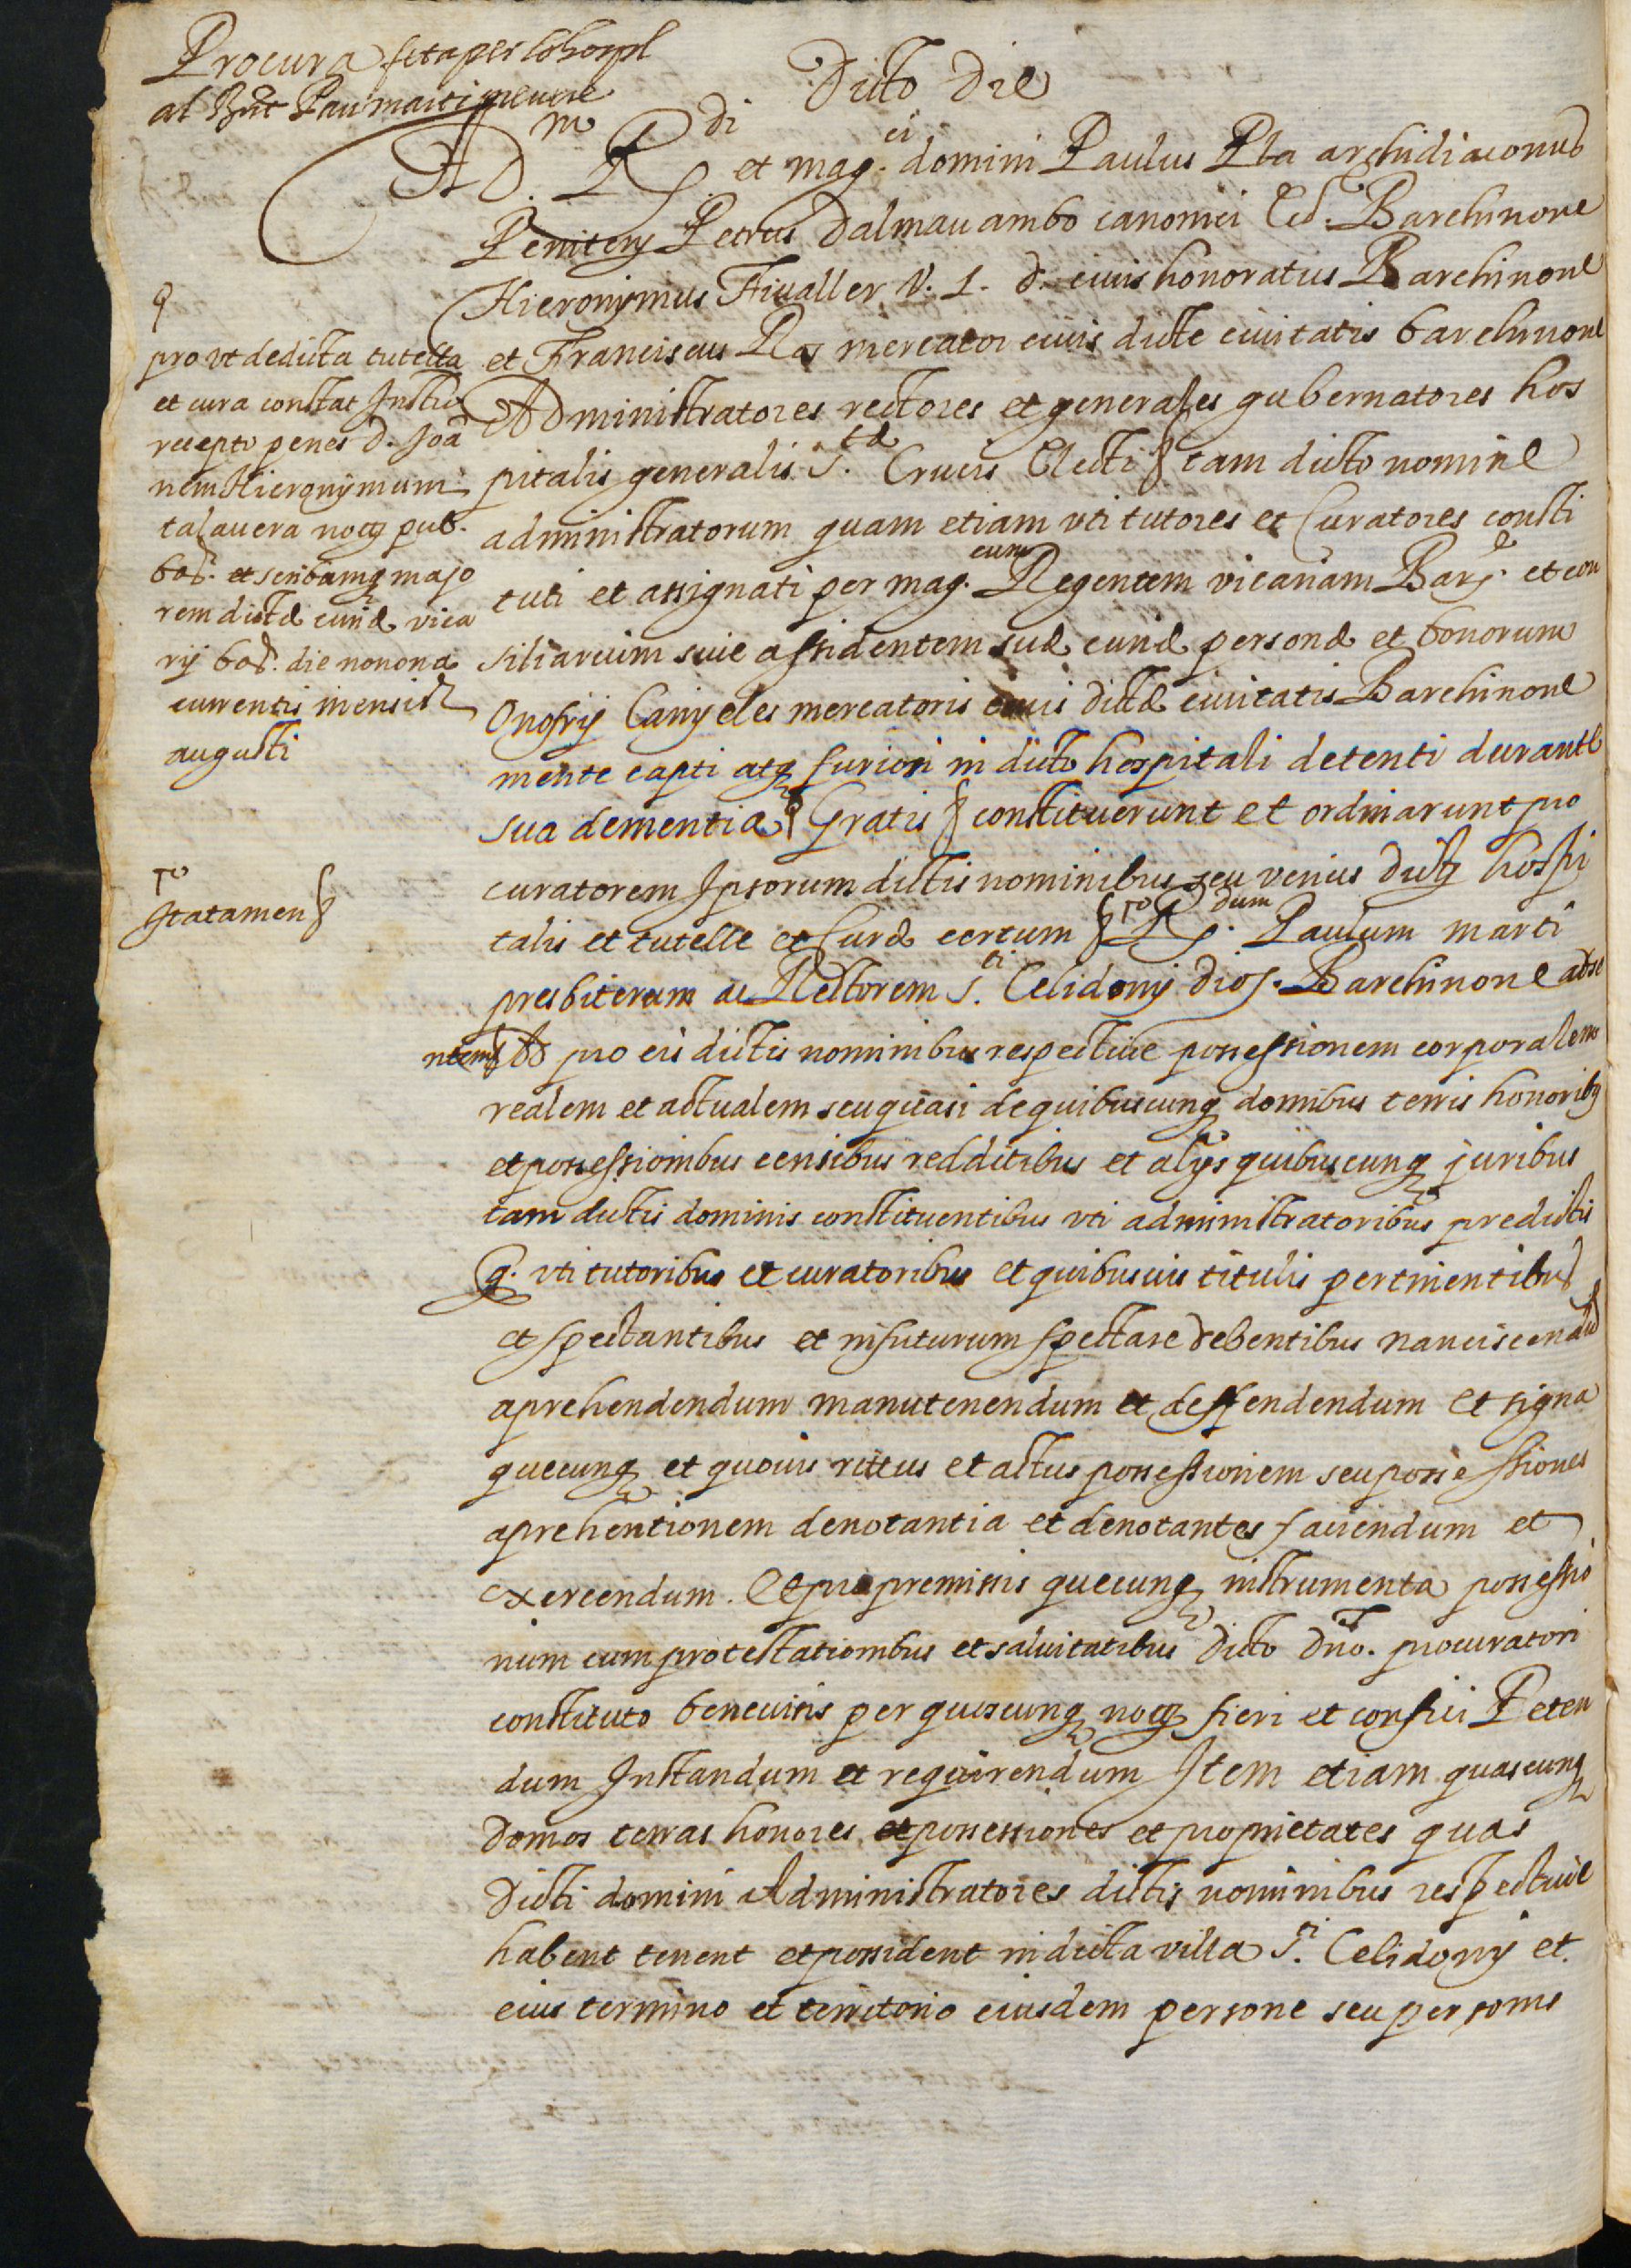 Procura feta per lo hospl
al Rnt Pau marti prevere
Dicto Die
Ad.m R.di et mag.ci domini Paulus Pla archidiaconus
Penitens Petrus Dalmau ambo canonici Sed. Barchinone
Hieronymus Fivaller V. I. d. civis honoratus Barchinone
et Franciscus Ros mercator civis dicte civitatis barchinone
Administratores rectores et generales gubernatores hos
pitalis generalis S.te Crucis Electi tam dicto nomine
administratorum quam etiam vti tutores et Curatores consti
tuti et assignati per mag.cum Regentem vicariam Bar.e et con
siliarium sive assidentem sue curie persone et bonorum
Onofrij Canyeles mercatoris civis dicte civitatis Barchinone
mente capti atq furiosi in dicto hospitali detenti durante
sua dementia Gratis constituerunt et ordinarunt pro
curatorem Ipsorum dictis nominibus seu verius dicti hospi
talis et tutelle et Cure certum R.dum Paulum marti
presbiterum ac Rectorem S.ti Celidonij dios. Barchinone abse
ntem Ad pro eis dictis nominibus respective possessionem corporalem
realem et actualem seu quasi de quibuscunq domibus terris honoribq
et possessionibus censibus redditibus et alijs quibuscunq juribus
tam dictis dominis constituentibus vti administratoribus predictis
q. vti tutoribus et curatoribus et quibusvis titulis pertinentibus
et spectantibus et in futurum spectare debentibus nanciscendu
aprehendendum manutenendum et deffendendum et signa
quecunq et quovis rittus et actus possessionem seu possessiones
aprehentionem denotantia et denotantes faciendum et
exercendum. Et pro premissis quecunq instrumenta possessio
num cum protestationibus et salvitatibus Dicto Dno. procuratori
constituto benevisis per quoscunq nots fieri et confici Peten
dum Instandum et requirendum Item etiam quascunq
Domos terras honores et possessiones et proprietates quas
Dicti domini Administratores dictis nominibus respective
habent tenent et possident in dicta villa S.ti Celidonij et
eius termino et territorio eiusdem persone seu personis
pro vt de dicta tutella
et cura constat Instro
recepto penes d. Joa
nem Hieronymum
talavera notm pub.
bar. et scribamq majo
rem dicte curie vica
rij bar. die nonona
currentis mensis
augusti
ro
statamen